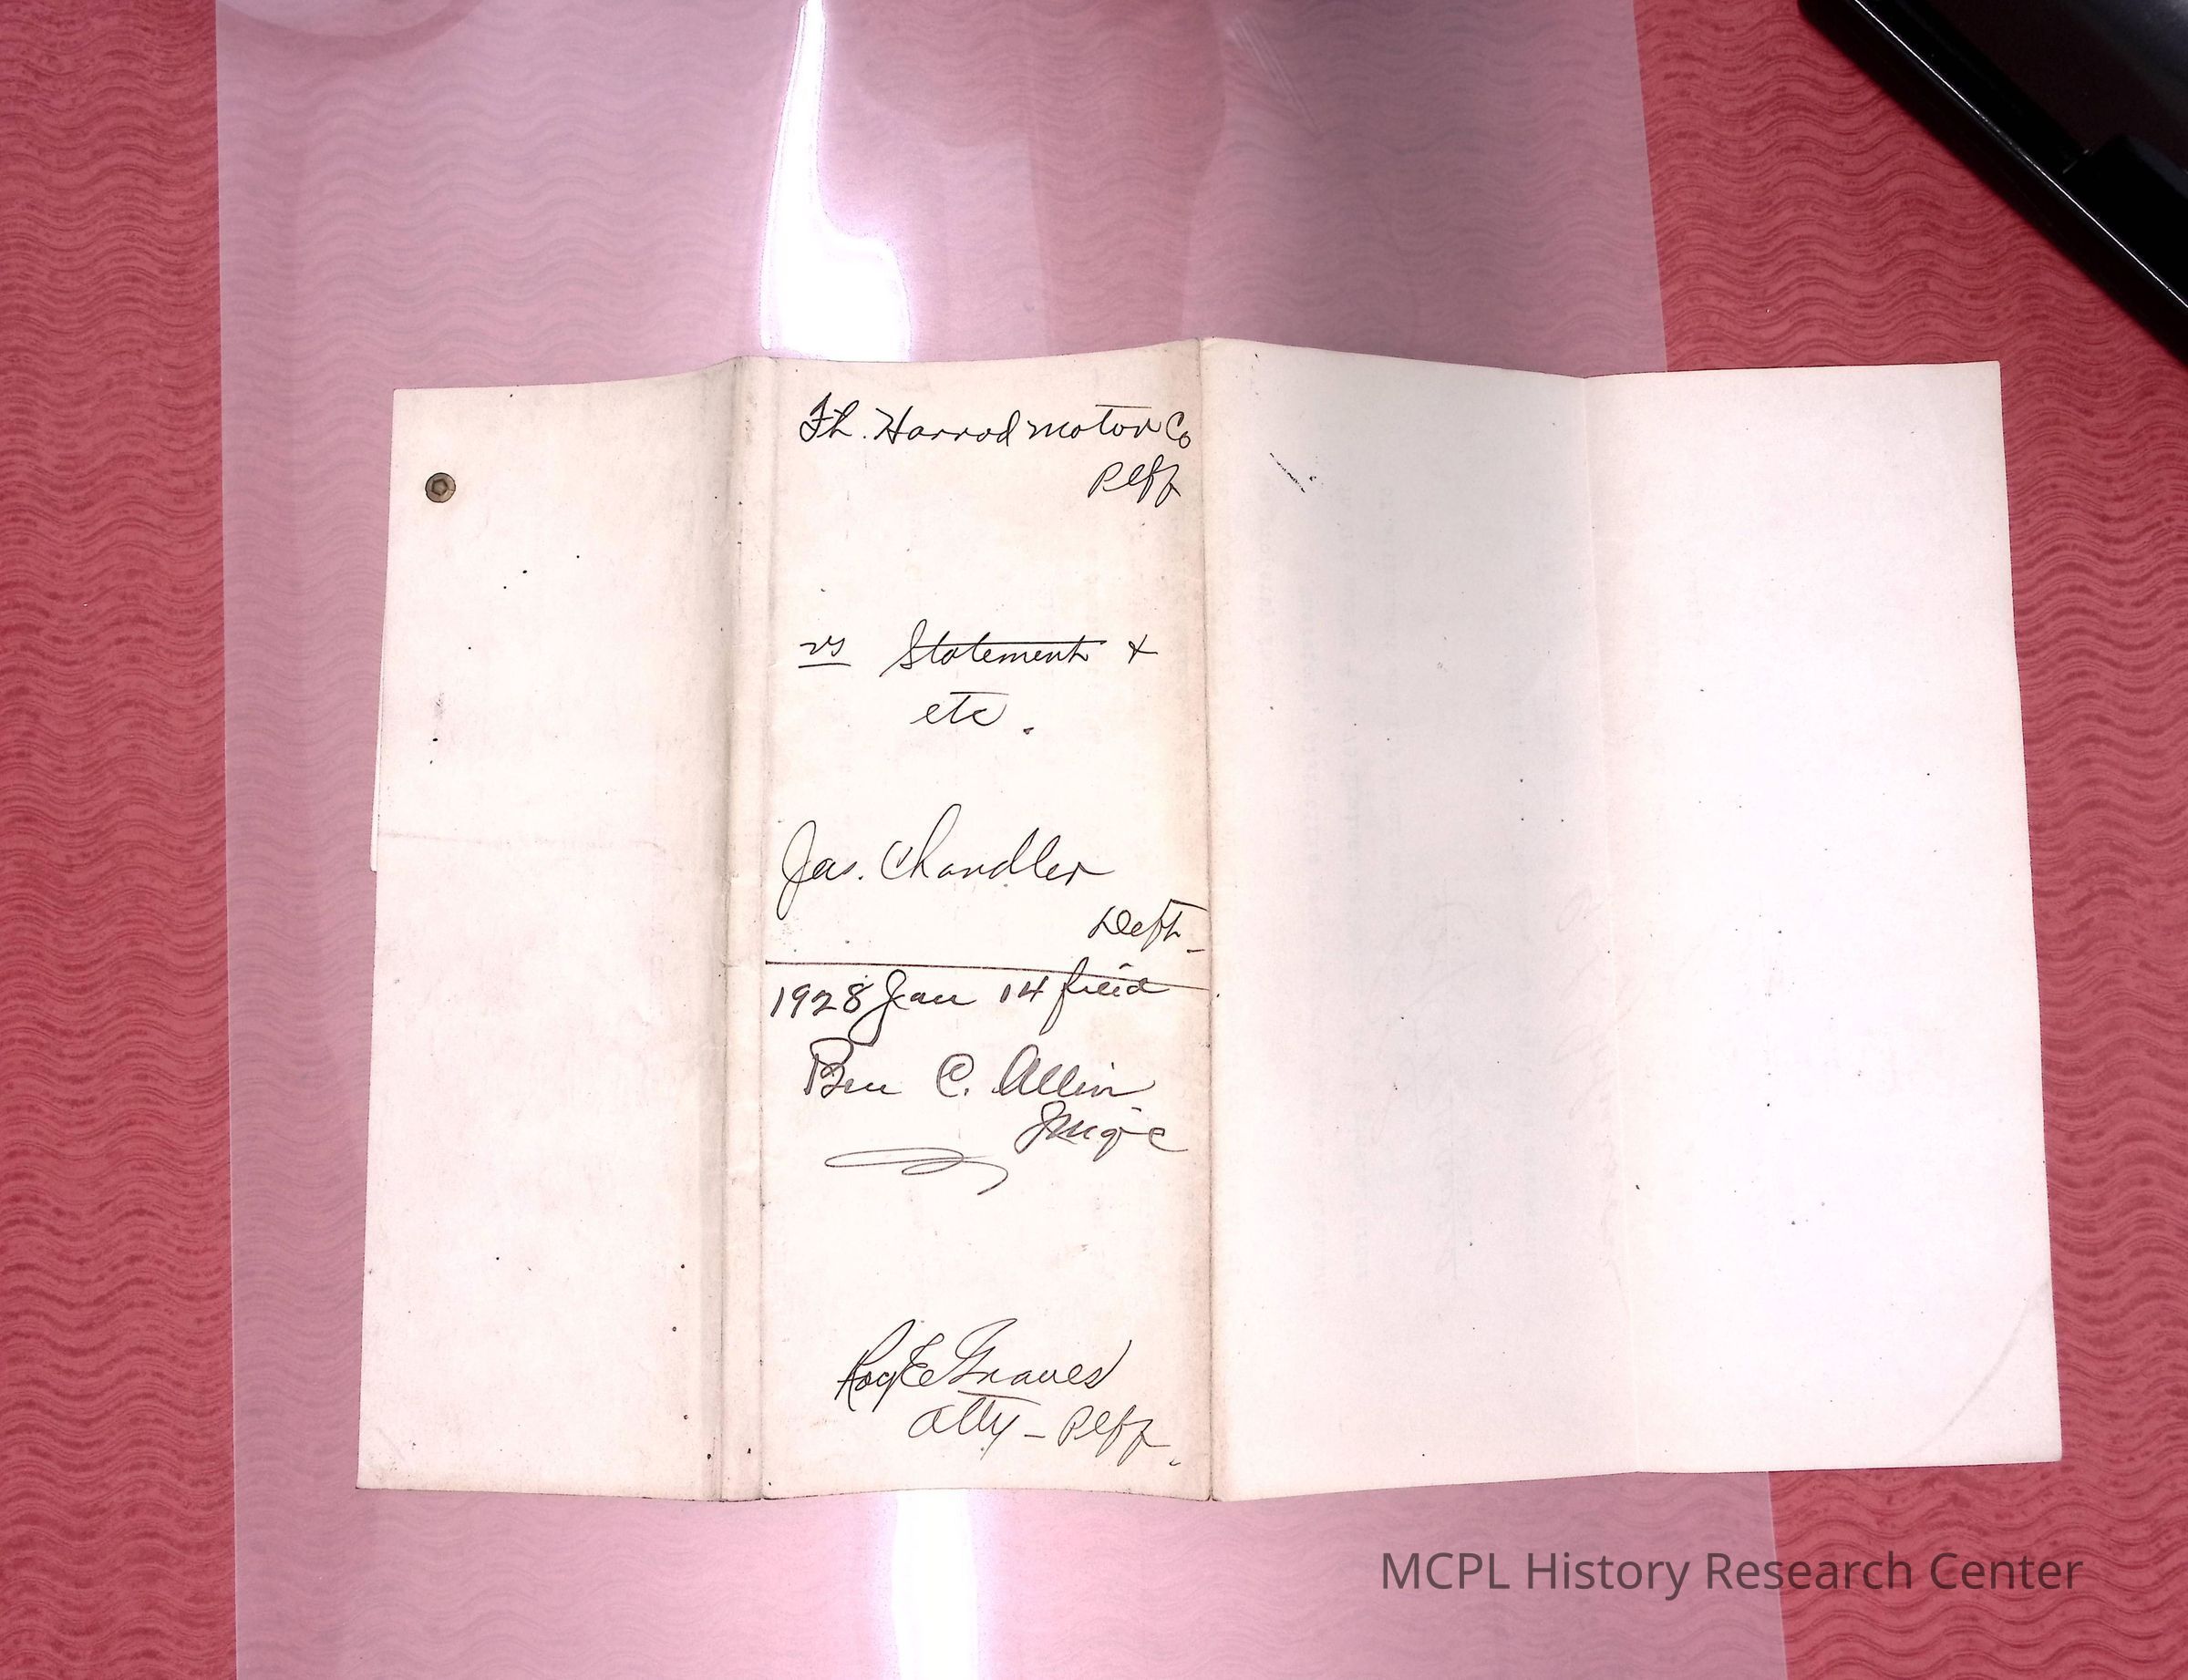 Ft. Harrod Motor Co
Plff
vs Statement &
etc.
Jas. Chandler
Deft-
1928 Jan 14 filed
Ben C. Allin
Judge
Roy E Graves
atty - Plff.
MCPL History Research Center